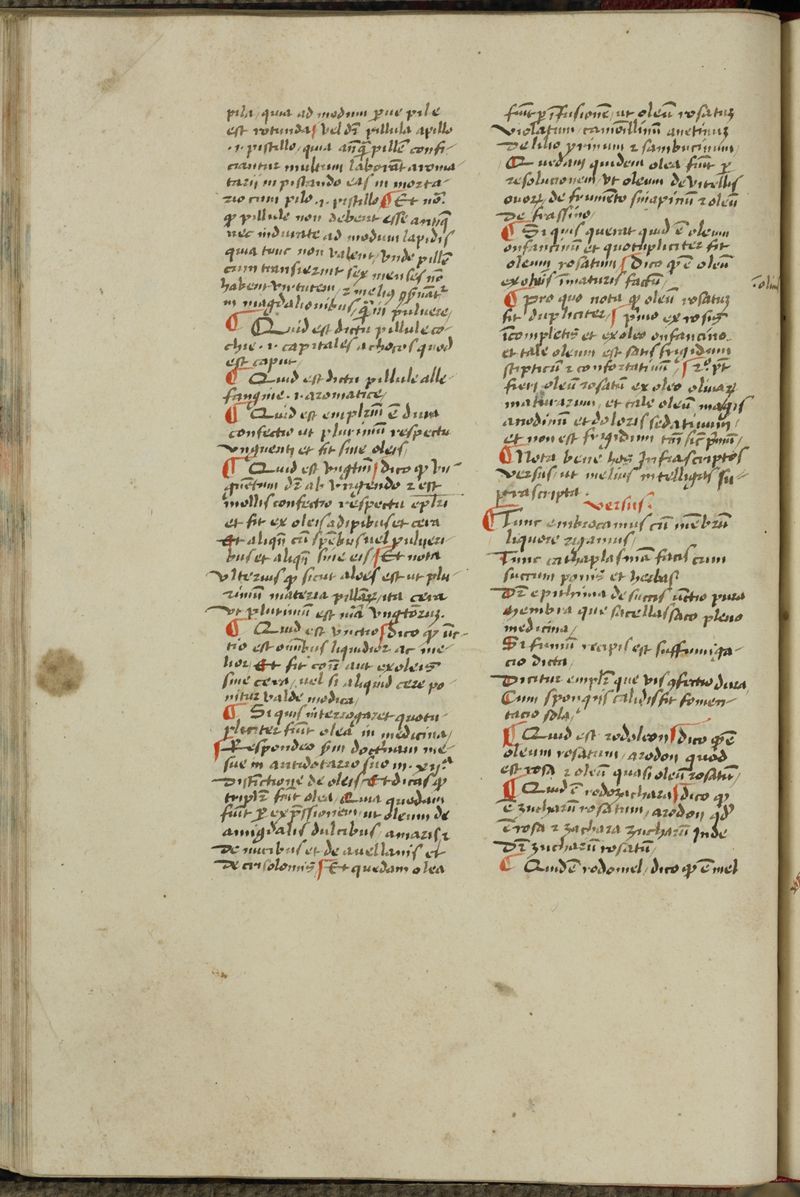 pila / quia ad modum pue pile
est rotunda vel dr̄ pillula a pillo
·i· pistillo / quia antiqͥ pille͂ confi
ciantur multum laborāt aroma
tarii in pistando eas in morta
rio cum pilo ·i· pistillo ¶ Et no͞
ꝙ pillule non debent esse
nec indurate ad modum lapidis
quia tunc non valent / Unde pille͂
cum transierint sex menses no͞
habent virtutem / et melius
in magdalionibus / in puluere /
¶ Quid est dictu pillule co
chie ·i· capitales a chocos quod
est caput
¶ Quid est dictu pillule alle
fangine ·i· aromatice /
¶ Quid est emplrm̄ ē dura
confectio ut plurimū respectu
Unguenti et fit sine oleis /
¶ Quid est Ungtm̄ dico ꝙ Un
guētum dr̄ ab Ungendo et est
mollis confectio respectu eplri
et fit ex oleis adipibus et cera
Et aliqn̄ cū spēbus uel pulueri
bus et aliqn̄ sine eis Et nota
Vlterius ꝙ sicut aloes est ut plu
rimū materia pillaꝝ / ita cera
Ut plurimū est mā Ungtorum.
¶ Quid est Unctio dico ꝙ unc
tio est omībus liquidior ac me
lior / Et fit coīr aut ex oleis
sine cera / uel si aliquid cere po
nitur valde modica /
¶ Si quis interrogaret quotu
pliciter fiūt olea in medicina /
Respondeo sm̄ doctrinam me
sue in antidotario suo in xij.ª
Distīctione de oleis Et dicas ꝙ
triplr̄ fiūt olea / Quia quedam
fiūt ꝑ expssionem / ut oleum de
amigdalis dulcibus / amaris et
De nucibus et de auellanis et
De crisolomis Et quedam olea
fiūt ꝑ īfusionē / ut oleū rosatuꝫ
Violatum / camomillinū anetinuꝫ
De lilio et sambucinum /
¶ Quedam quidem olea fiūt ꝑ
resolucionem / Ut oleum de Vitellis
ouoꝝ / de frumēto sinapinū et oleū
De frassino /
¶ Si quis querat quid ē oleum
onfancinū et quotupliciter fit
oleum rosatum Dico ꝙ ē oleū
ex oliuis īmaturis factū /
¶ Pro quo nota ꝙ oleū rosatuꝫ
fit dupliciter / primo ex rosis
īcompletis et ex oleo onfancino
et tale oleum est satis frigidum
stipticū et confortatiuū / 2.º
fieri oleū rosatū ex oleo oliuaꝝ
maturarum / et tale oleū magis
anodinū et doloris sedatiuum /
et non est frigidum tm̄ sic
¶ Nota bene hos Infrascriptos
Versus / ut melius intelligas su
prascripta.
Versus.
¶ Tunc embrocamus cū mēbrū
liquore rigamus
Tunc cathaplasmā facis cum
succum ponis et herbas
Dr̄ epithima de succis unctio pura
Membra que sacellas sacco pleno
medicina /
Si fumū recipis est suffumiga
cio dicta /
Dicitur emplr̄ que vis ꝯfectio dura
Cum spongiis calidis fit fomen
tacio sola /
¶ Quid est rodoleon dico ꝙ ē
oleum rosatum / a rodon quod
est rosa et oleū quasi oleū rosatū /
¶ Quid ē rodozachara dico ꝙ
ē zucharū rosatum / a rodon qd̄
ē rosa et zachara zucharū Inde
Dr̄ zucharū rosatū /
¶ Quid ē rodomel / dico ꝙ ē mel